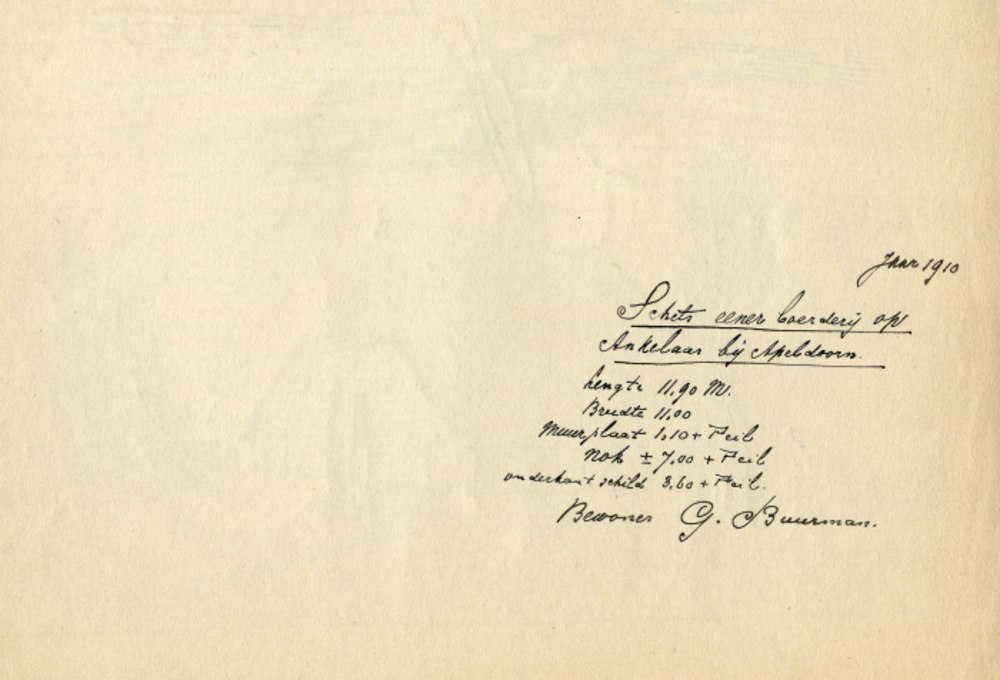 Jaar 1910
Schets eener boerderij op
Ankelaar bij Apeldoorn.
Lengte 11.90 M.
Breedte 11.00
Muurplaat 1.10 + Peil
nok ± 7.00 + Peil
onderkant schild 3.60 + Peil.
Bewoner G. Buurman.